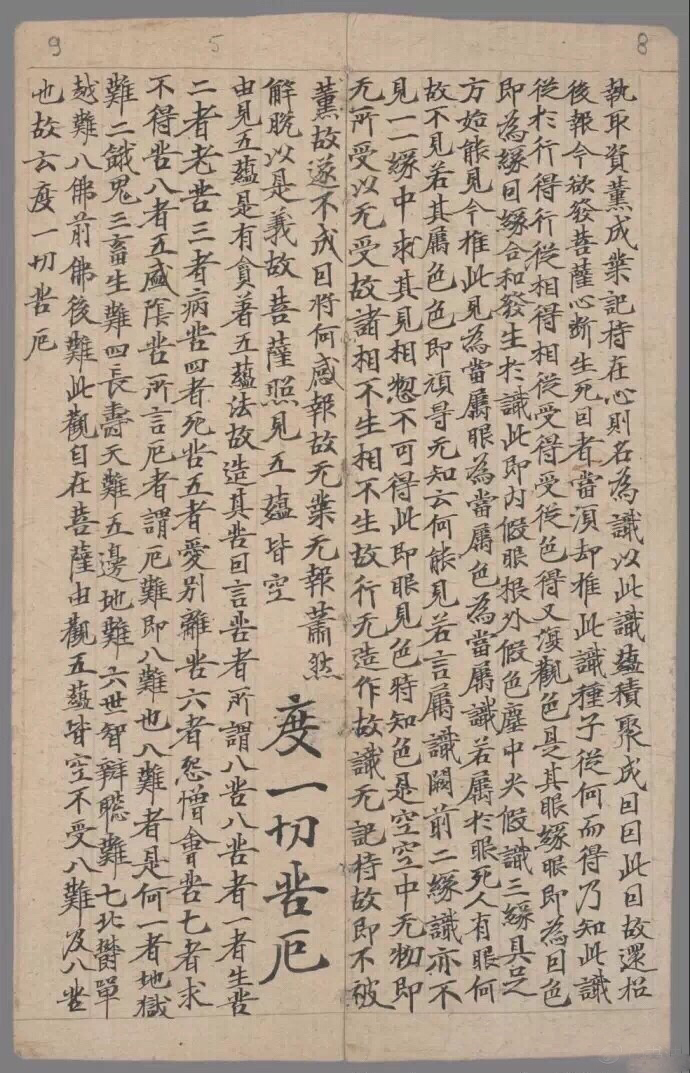 8
執取資薰成業記持在心則名為識以此識蘊積聚成因因此因故還招
後報今欲發菩薩心斷生死因者當須却推此識種子從何而得乃知此識
從於行得行從相得相從受得受從色得又復觀色是其眼緣眼即為因色
即為緣因緣合和發生於識此即內假眼根外假色塵中央假識三緣具足
方始能見今推此見為當屬眼為當屬色為當屬識若屬於眼死人有眼何
故不見若其屬色色即頑㝵无知云何能見若言屬識闕前二緣識亦不
見一一緣中求其見相惣不可得此即眼見色時知色是空空中无物即
无所受以无受故諸相不生相不生故行无造作故識无記持故即不被
5
9
薰故遂不成因將何感報故无業无報蕭然
解脱以是義故菩薩照見五蘊皆空
度一切苦厄
由見五蘊是有貪著五蘊法故造其苦因言苦者所謂八苦八苦者一者生苦
二者老苦三者病苦四者死苦五者愛別離苦六者怨憎會苦七者求
不得苦八者五盛陰苦所言厄者謂厄難即八難也八難者是何一者地獄
難二餓鬼三畜生難四長壽天難五邊地難六世智辯聰難七北欝單
越難八佛前佛後難此觀自在菩薩由觀五蘊皆空不受八難及八苦
也故云度一切苦厄